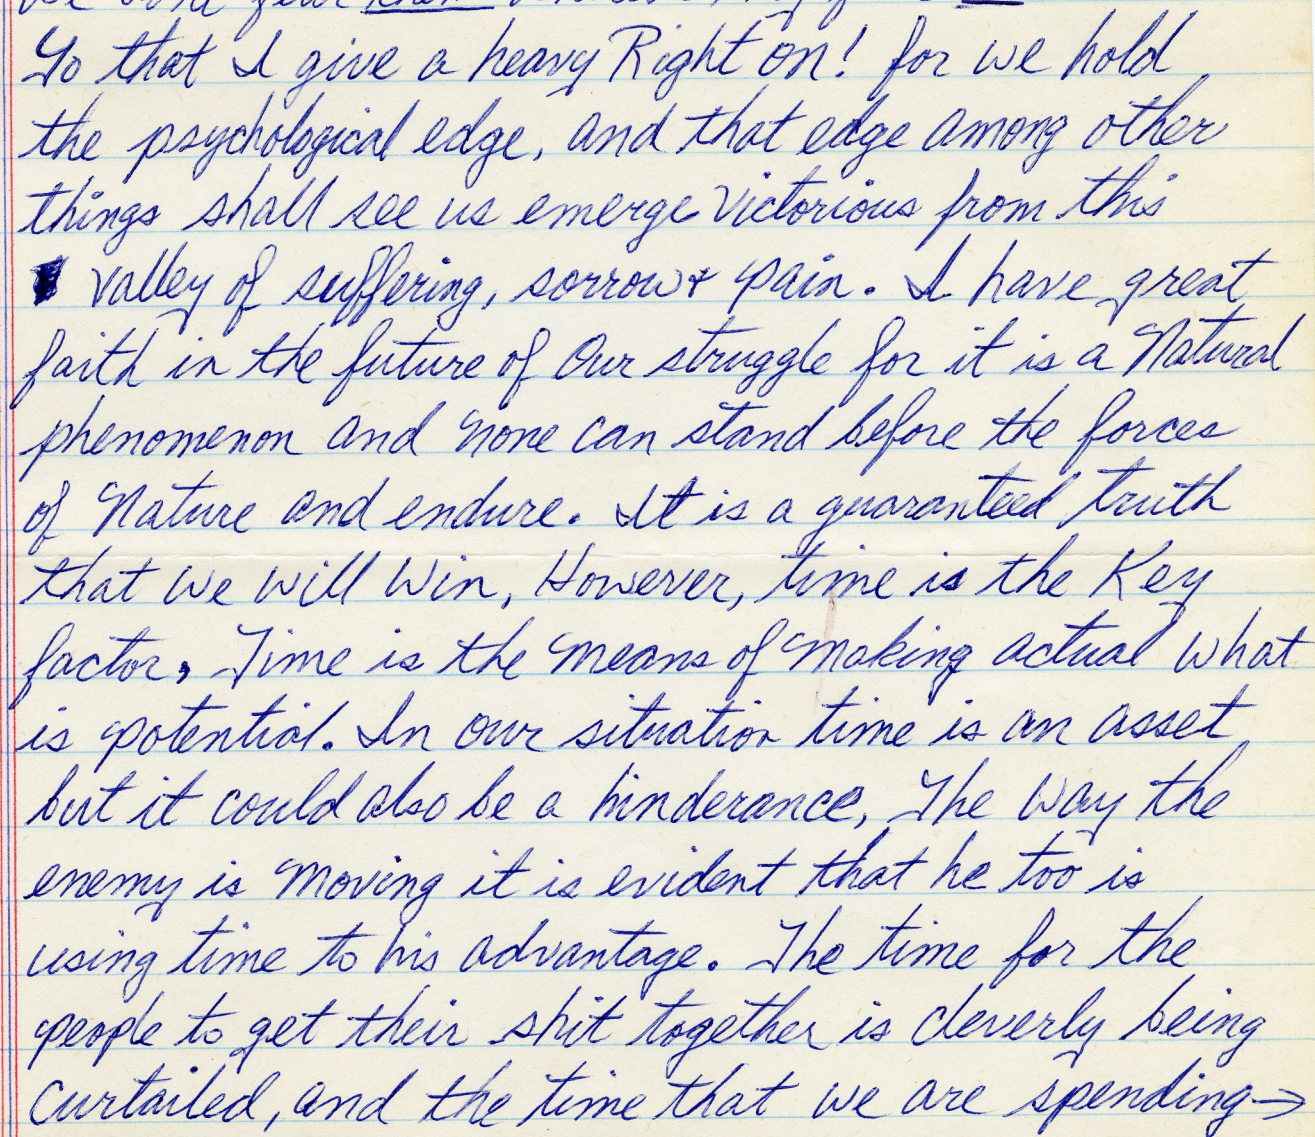 To that I give a heavy Right on! for we hold
the psychological edge, and that edge among other
things shall see us emerge victorious from this
valley of suffering, sorrow & pain. I have great
faith in the future of Our struggle for it is a Natural
phenomenon and none can stand before the forces
of Nature and endure. It is a guaranteed truth
that we will win, However, time is the Key
factor, Time is the means of making actual what
is potential. In our situation time is an asset
but it could also be a hinderance, The way the
enemy is moving it is evident that he too is
using time to his advantage. The time for the
people to get their shit together is cleverly being
curtailed, and the time that we are spending→